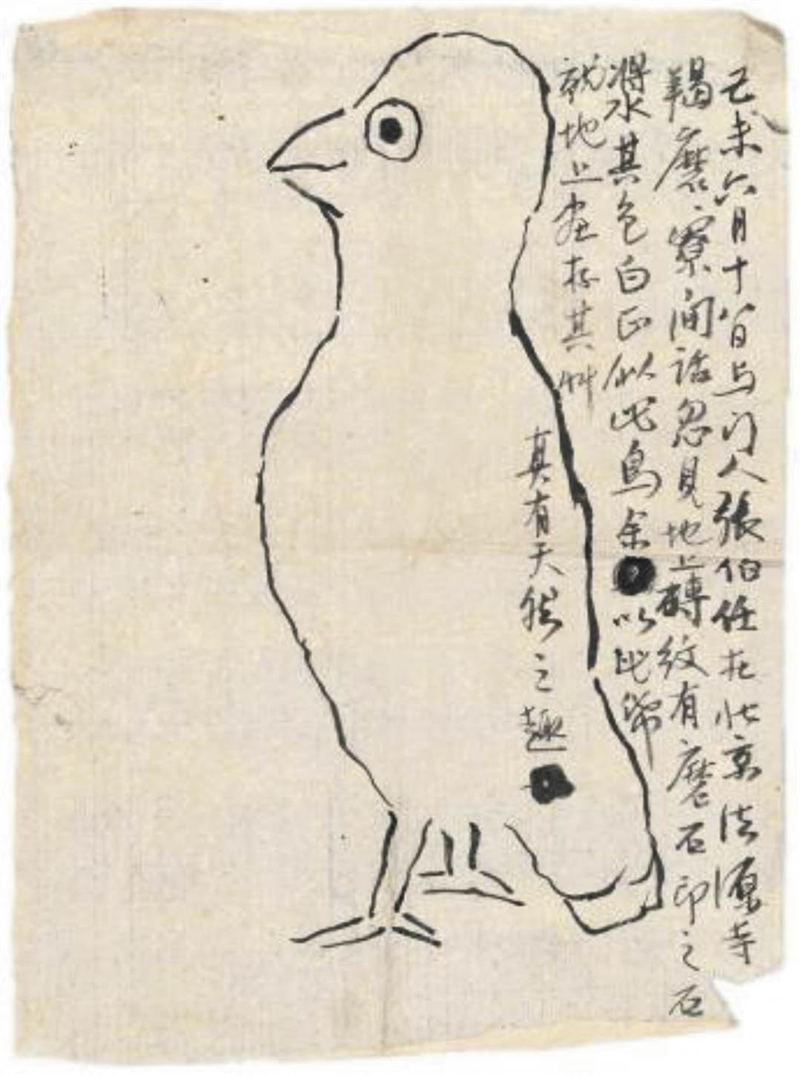 己未六月十八日与门人張伯任在北京法源寺
羯磨寮闲话忽見地上磚紋有磨石印之石
漿水其色白正似此鳥余以此帋
就地上画存其艸
真有天然之趣